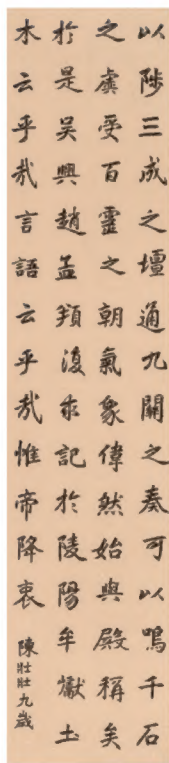 以陟三成之壇通九關之奏可以鳴千石
之虡受百靈之朝氣象偉然始與殿稱矣
於是吳興趙孟頫復求記於陵陽牟巘土
木云乎哉言語云乎哉惟帝降衷
陳壯壯九歲